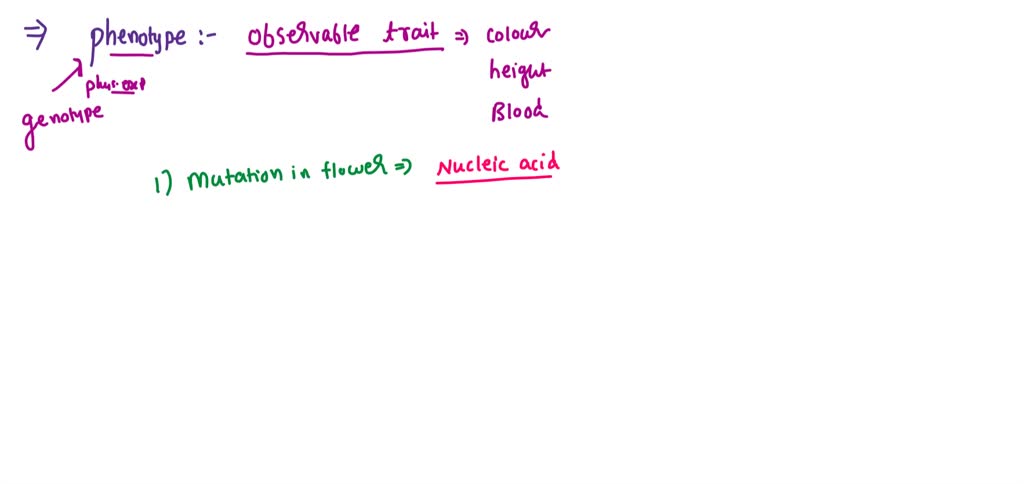 ⇒ phenotype :- observable trait ⇒ colour
height
Blood
genotype
1) Mutation in flower ⇒ Nucleic acid